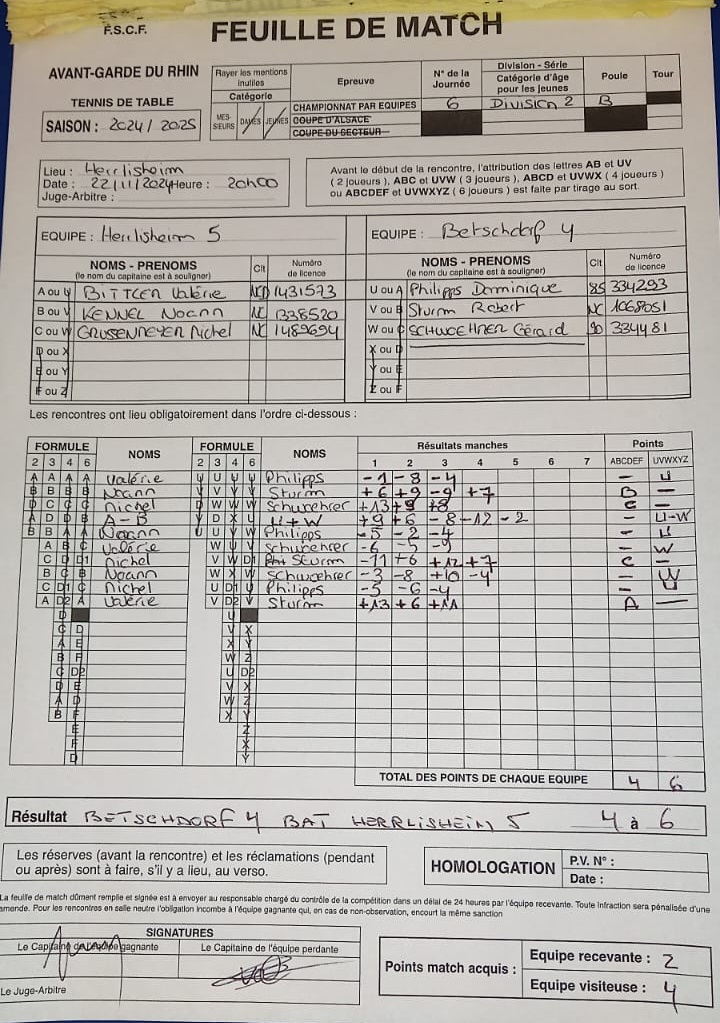 F.S.C.F.
FEUILLE DE MATCH
AVANT-GARDE DU RHIN
TENNIS DE TABLE
SAISON : 2024/2025
Rayer les mentions inutiles
Catégorie
MES-SIEURS DAMES JEUNES
Epreuve
CHAMPIONNAT PAR EQUIPES
COUPE D'ALSACE
COUPE DU SECTEUR
N° de la Journée
6
Division - Série
Catégorie d'âge pour les jeunes
Division 2
Poule
B
Tour
Lieu : Herrlisheim
Date : 22/11/2024 Heure : 20h00
Juge-Arbitre :
Avant le début de la rencontre, l'attribution des lettres AB et UV
( 2 joueurs ), ABC et UVW ( 3 joueurs ), ABCD et UVWX ( 4 joueurs )
ou ABCDEF et UVWXYZ ( 6 joueurs ) est faite par tirage au sort.
EQUIPE : Herrlisheim 5
EQUIPE : Betschdorf 4
NOMS - PRENOMS (le nom du capitaine est à souligner) Clt Numéro de licence
NOMS - PRENOMS (le nom du capitaine est à souligner) Clt Numéro de licence
A ou U Valérie 1431573
U ou A Philipps Dominique 85 334293
B ou V KENNEL Noann NC 1338520
V ou B Sturm Robert NC 1068051
C ou W NC 1489694
W ou C SCHWOEHRER Gérard 90 334481
D ou X
X ou D
E ou Y
Y ou E
F ou Z
Z ou F
Les rencontres ont lieu obligatoirement dans l'ordre ci-dessous :
FORMULE NOMS FORMULE NOMS Résultats manches Points
2 3 4 6 2 3 4 6 1 2 3 4 5 6 7 ABCDEF UVWXYZ
A A A A Valérie U U U U Philipps -1 -8 -4 – U
B B B B Noann V V V V Sturm +6 +9 -9 +7 B –
C C C Michel W W W Schwoehrer +13 +9 +8 C –
A D D B A-B V D X U U+W +9 +6 -8 -12 -2 – U-W
B B A A Noann U U V W Philipps -5 -2 -4 – U
A B C Valérie W U V Schwoehrer -6 -5 -9 – W
C D D1 Michel V W D1 Sturm -11 +6 +12 +7 C –
B C B Noann W X W Schwoehrer -3 -8 +10 -4 – W
C D1 C Michel U D1 U Philipps -5 -6 -4 – U
A D2 A Valérie V D2 V Sturm +13 +6 +11 A –
D U
C D V X
A E X Y
B F W Z
C D2 U D2
D E V X
A D W Z
B F X Y
E Z
F X
D Y
TOTAL DES POINTS DE CHAQUE EQUIPE 4 6
Résultat BETSCHDORF 4 BAT HERRLISHEIM 5 4 à 6
Les réserves (avant la rencontre) et les réclamations (pendant
ou après) sont à faire, s'il y a lieu, au verso.
HOMOLOGATION
P.V. N° :
Date :
La feuille de match dûment remplie et signée est à envoyer au responsable chargé du contrôle de la compétition dans un délai de 24 heures par l'équipe recevante. Toute infraction sera pénalisée d'une
amende. Pour les rencontres en salle neutre l'obligation incombe à l'équipe gagnante qui, en cas de non-observation, encourt la même sanction
SIGNATURES
Le Capitaine de l'équipe gagnante
Le Capitaine de l'équipe perdante
Le Juge-Arbitre
Points match acquis :
Equipe recevante : 2
Equipe visiteuse : 4